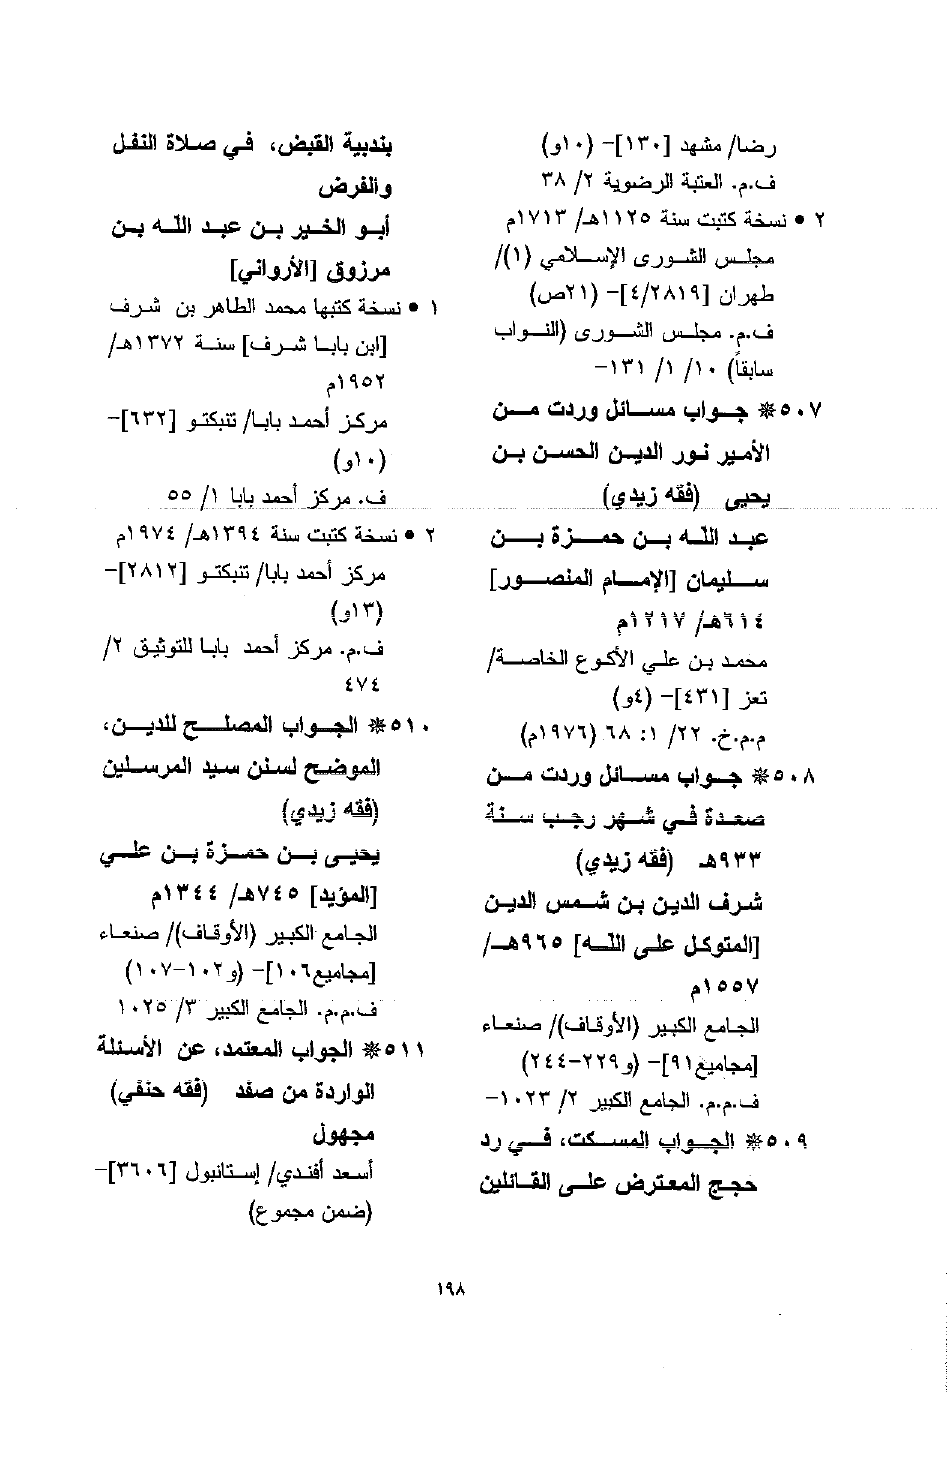 رضا/ مشهد [١٣٠]- (١٠و)
ف.م. العتبة الرضوية ٢/ ٣٨
٢ • نسخة كتبت سنة ١١٢٥هـ/ ١٧١٣م
مجلس الشورى الإسلامي (١)/
طهران [٤/٢٨١٩]- (٢١ص)
ف.م. مجلس الشورى (النواب
سابقاً) ١٠/ ١/ ١٣١-
٥٠٧ ❊ جواب مسائل وردت من
الأمير نور الدين الحسن بن
يحيى (فقه زيدي)
عبد الله بن حمزة بن
سليمان [الإمام المنصور]
٦١٤هـ/ ١٢١٧م
محمد بن علي الأكوع الخاصة/
تعز [٤٣١]- (٤و)
م.م.خ. ٢٢/ ١: ٦٨ (١٩٧٦م)
٥٠٨ ❊ جواب مسائل وردت من
صعدة في شهر رجب سنة
٩٣٣هـ (فقه زيدي)
شرف الدين بن شمس الدين
[المتوكل على الله] ٩٦٥هـ/
١٥٥٧م
الجامع الكبير (الأوقاف)/ صنعاء
[مجاميع٩١]- (و٢٢٩-٢٤٤)
ف.م.م. الجامع الكبير ٢/ ١٠٢٣-
٥٠٩ ❊ الجواب المسكت، في رد
حجج المعترض على القائلين
بندبية القبض، في صلاة النفل
والفرض
أبو الخير بن عبد الله بن
مرزوق [الأرواني]
١ • نسخة كتبها محمد الطاهر بن شرف
[ابن بابا شرف] سنة ١٣٧٢هـ/
١٩٥٢م
مركز أحمد بابا/ تنبكتو [٦٣٢]-
(١٠و)
ف. مركز أحمد بابا ١/ ٥٥
٢ • نسخة كتبت سنة ١٣٩٤هـ/ ١٩٧٤م
مركز أحمد بابا/ تنبكتو [٢٨١٢]-
(١٣و)
ف.م. مركز أحمد بابا للتوثيق ٢/
٤٧٤
٥١٠ ❊ الجواب المصلح للدين،
الموضح لسنن سيد المرسلين
(فقه زيدي)
يحيى بن حمزة بن علي
[المؤيد] ٧٤٥هـ/ ١٣٤٤م
الجامع الكبير (الأوقاف)/ صنعاء
[مجاميع١٠٦]- (و١٠٢-١٠٧)
ف.م.م. الجامع الكبير ٣/ ١٠٢٥
٥١١ ❊ الجواب المعتمد، عن الأسئلة
الواردة من صفد (فقه حنفي)
مجهول
أسعد أفندي/ إستانبول [٣٦٠٦]-
(ضمن مجموع)
١٩٨